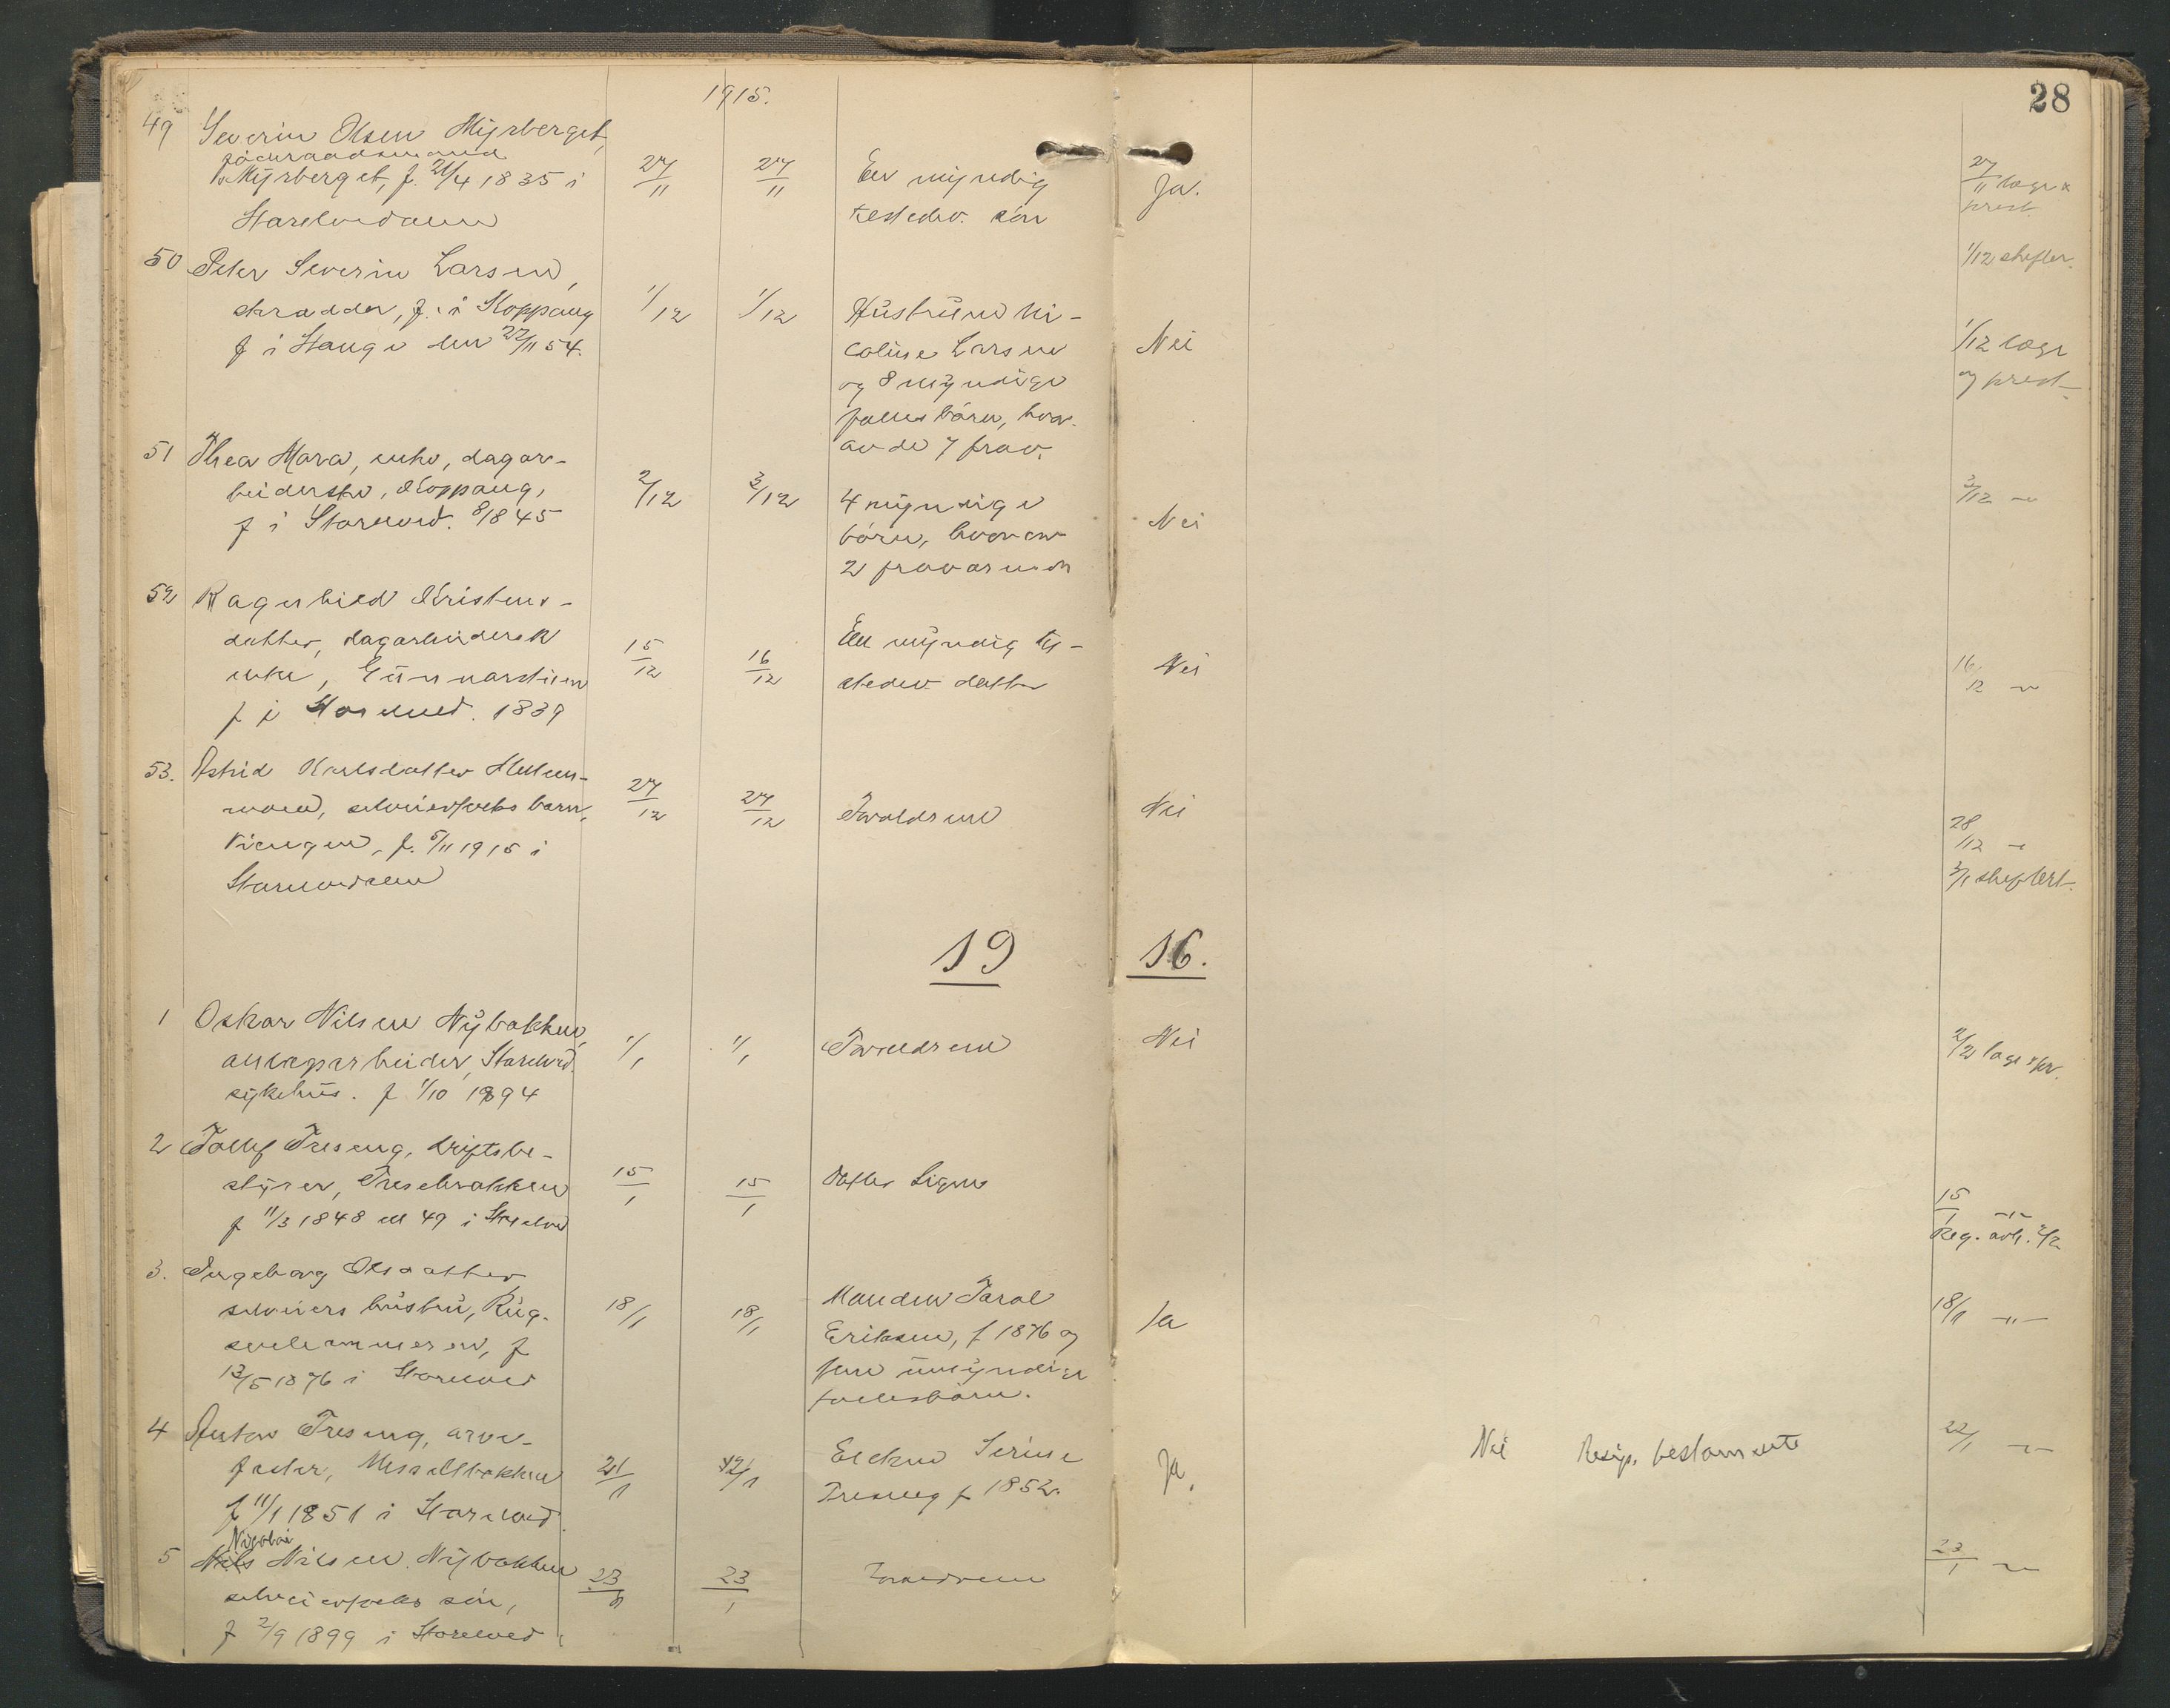 28
1915.
49 Severin Olsen Myrberget,
föderaadsmand
Myrberget, f. 21/4 1835 i
Storelvedalen
27/11
27/11
En myndig
tilstedev. sön
Ja.
27/11 læge &
prest
50 Peter Severin Larsen,
skrædder, f. i Koppang
f i Stange den 22/11 54.
1/12
1/12
Hustruen Ni-
coline Larsen
og 8 myndige
fælles börn, hvor-
av de 7 frav.
Nei
1/12 skifter.
1/12 læge
og prest
51 Thea Mora, enke, dagar-
beiderske, Koppang,
f i Storelved. 8/8 45
2/12
3/12
4 myndige
börn, hvorav
2 fraværende
Nei
3/12 -"-
52 Ragnhild Kristens-
datter, dagarbeidersk
enke, Gunnarstuen
f i Storelved. 1839
15/12
16/12
En myndig til-
stedev. datter
Nei
16/12 -"-
53. Astrid Karlsdatter
moen, selveierfolks barn,
f. 5/11 1915 i
Storelvedalen
27/12
27/12
Forældrene
Nei
28/12 -"-
3/1 skiftert.
19 16.
1 Oskar Nilsen Nybakken,
anlægsarbeider, Storelved.
sykehus. f 1/10 1894
1/1
1/1
Forældrene
Nei
2/2 læge & pr.
2 Tollef Treseng, driftsbe-
styrer,
f 11/3 1848 ell 49 i Storelved
15/1
15/1
Datter Signe
15/1 -"-
Reg. avh. 2/2
3. Ingeborg Olsdatter,
selveiers hustru, Rug-
sveehammeren, f
12/5 1876 i Storelved
18/1
18/1
Manden Taral
Eriksen, f 1876 og
fem umyndige
fællesbörn.
Ja
18/1 -"-
4 Anton Treseng, arve-
fæster, Messeltbakken
f 11/1 1851 i Storelved.
21/1
22/1
Enken Serine
Treseng f 1852.
Ja.
Nei Resip. testamente
22/1 -"-
Nicolai
5 Nils Nilsen Nybakken
selveierfolks sön,
f 2/9 1899 i Storelved
23/1
23/1
Forældrene
23/1 -"-